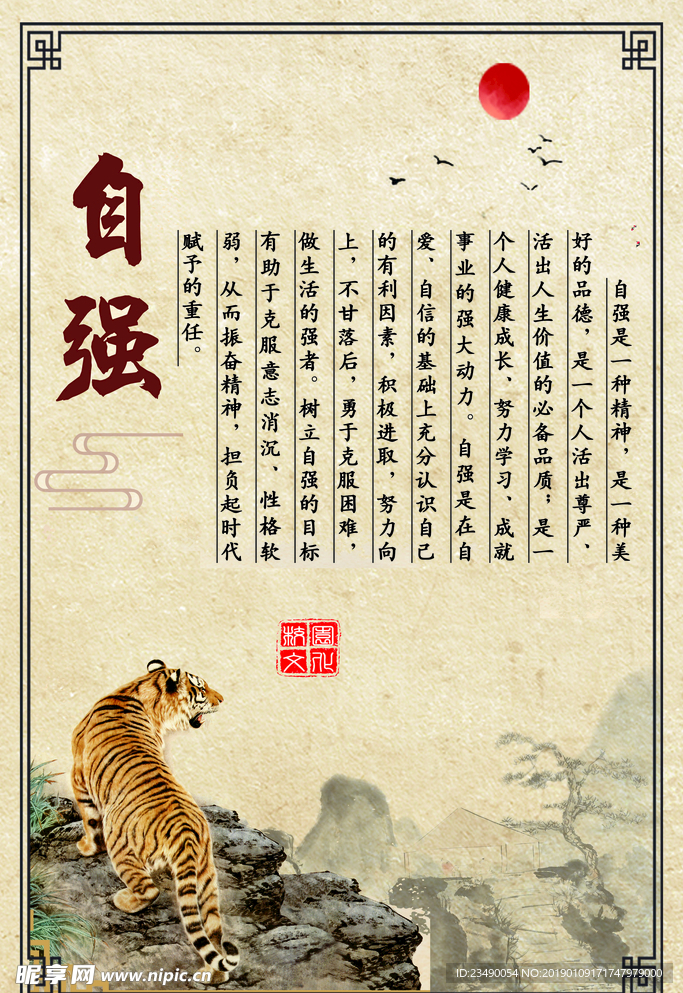 自强
自强是一种精神，是一种美
好的品德，是一个人活出尊严、
活出人生价值的必备品质；是一
个人健康成长、努力学习、成就
事业的强大动力。自强是在自
爱、自信的基础上充分认识自己
的有利因素，积极进取，努力向
上，不甘落后，勇于克服困难，
做生活的强者。树立自强的目标
有助于克服意志消沉、性格软
弱，从而振奋精神，担负起时代
赋予的重任。
校园文化
昵享网 www.nipic.cn
ID:23490054 NO:20190109171747979000